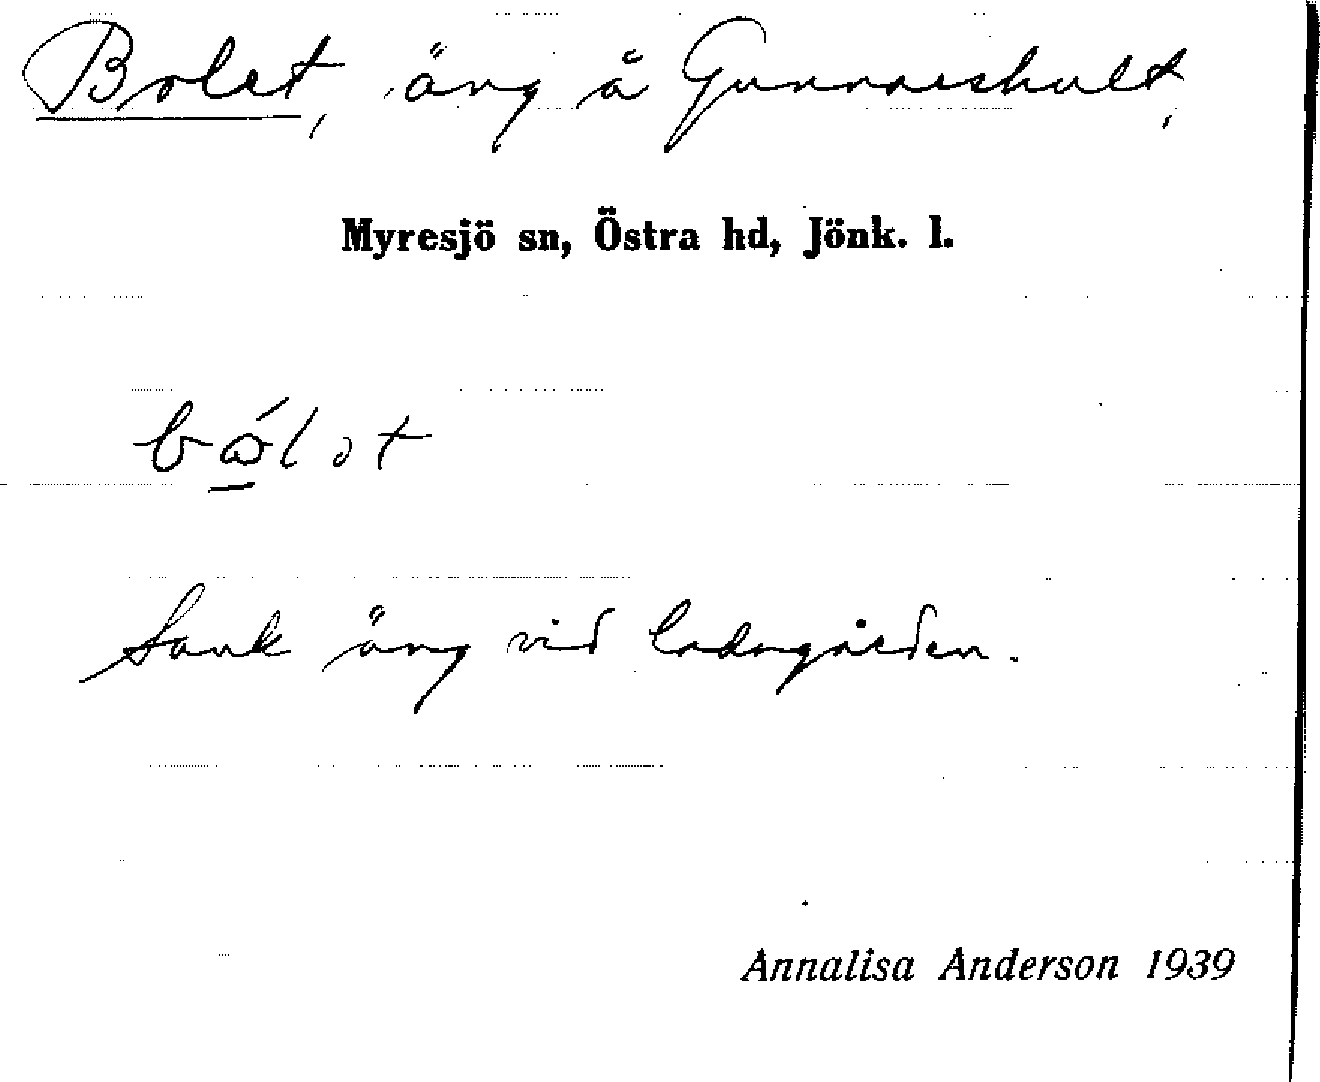 Bolet, äng å Gunnarshult,
Myresjö sn, Östra hd, Jönk. l.
Sank äng vid ladugården.
Annalisa Anderson 1939